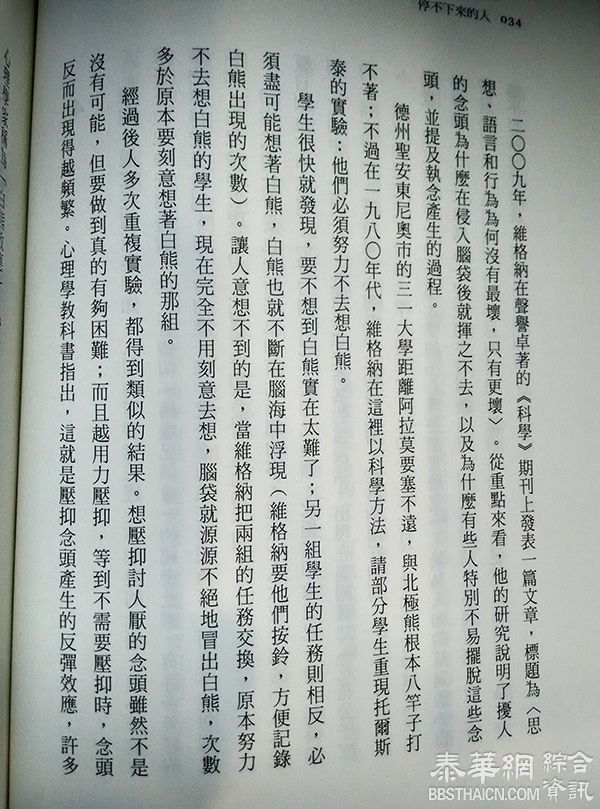 停不下來的人 034
二〇〇九年，維格納在聲譽卓著的《科學》期刊上發表一篇文章，標題為〈思
想、語言和行為為何沒有最壞，只有更壞〉。從重點來看，他的研究說明了擾人
的念頭為什麼在侵入腦袋後就揮之不去，以及為什麼有些人特別不易擺脫這些念
頭，並提及執念產生的過程。
德州聖安東尼奧市的三一大學距離阿拉莫要塞不遠，與北極熊根本八竿子打
不著；不過在一九八〇年代，維格納在這裡以科學方法，請部分學生重現托爾斯
泰的實驗：他們必須努力不去想白熊。
學生很快就發現，要不想到白熊實在太難了；另一組學生的任務則相反，必
須盡可能想著白熊，白熊也就不斷在腦海中浮現（維格納要他們按鈴，方便記錄
白熊出現的次數）。讓人意想不到的是，當維格納把兩組的任務交換，原本努力
不去想白熊的學生，現在完全不用刻意去想，腦袋就源源不絕地冒出白熊，次數
多於原本要刻意想著白熊的那組。
經過後人多次重複實驗，都得到類似的結果。想壓抑討人厭的念頭雖然不是
沒有可能，但要做到真的有夠困難；而且越用力壓抑，等到不需要壓抑時，念頭
反而出現得越頻繁。心理學教科書指出，這就是壓抑念頭產生的反彈效應，許多
泰華網 綜合資訊
BBSTHAICN.COM